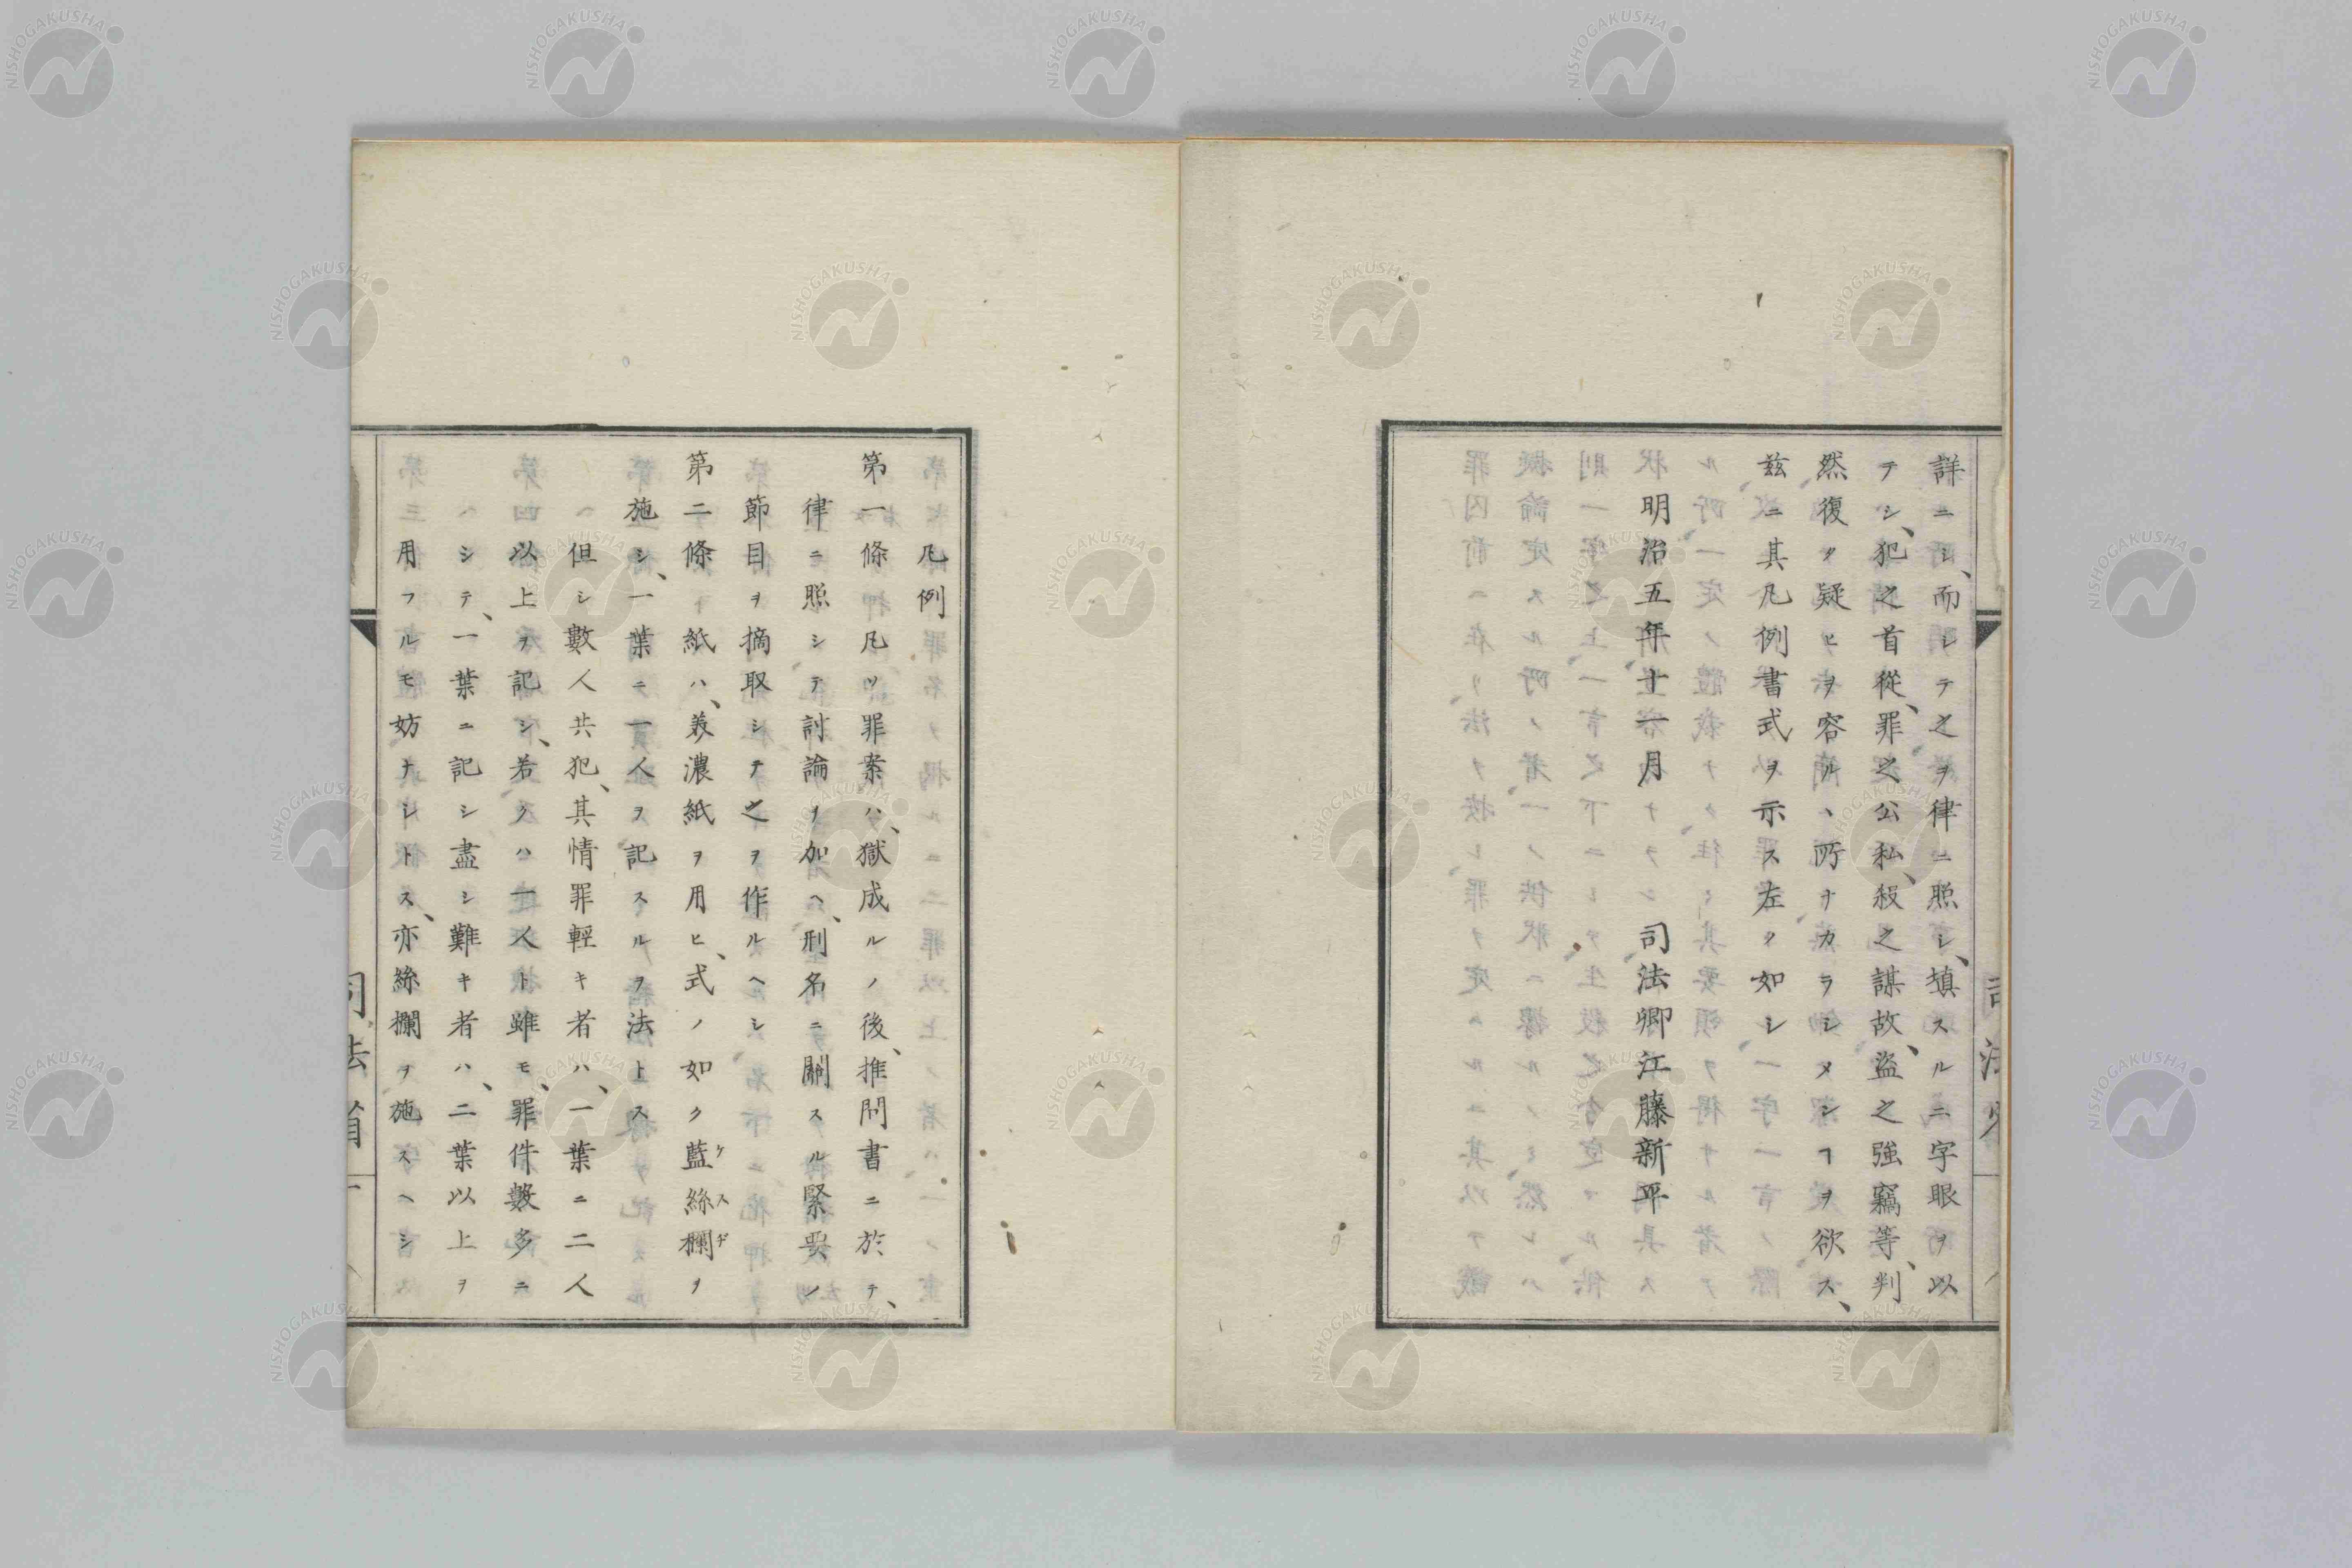 詳ニシ、而シテ之ヲ律ニ照シ、塡スルニ字眼ヲ以
テシ、犯之首從、罪之公私、殺之謀故、盗之強竊等、判
然復タ疑ヒヲ容ルヽ所ナカラシメンヿヲ欲ス、
茲ニ其凡例書式ヲ示ス左ノ如シ
明治五年十一月　司法卿江藤新平
凡例
第一條凡ソ罪案ハ、獄成ルノ後、推問書ニ於テ、
律ニ照シテ討論ヲ加ヘ、刑名ニ關スル緊要ノ
節目ヲ摘取シテ之ヲ作ルヘシ
第二條紙ハ、美濃紙ヲ用ヒ、式ノ如ク藍絲欄ヲ
ケスヂ
施シ、一葉ニ一人ヲ記スルヲ法トス
但シ數人共犯、其情罪輕キ者ハ、一葉ニ二人
以上ヲ記シ、若クハ一人ト雖モ、罪件數多ニ
シテ、一葉ニ記シ盡シ難キ者ハ、二葉以上ヲ
用フルモ妨ナシトス、亦絲欄ヲ施スヘシ
司法省
NISHOGAKUSHA